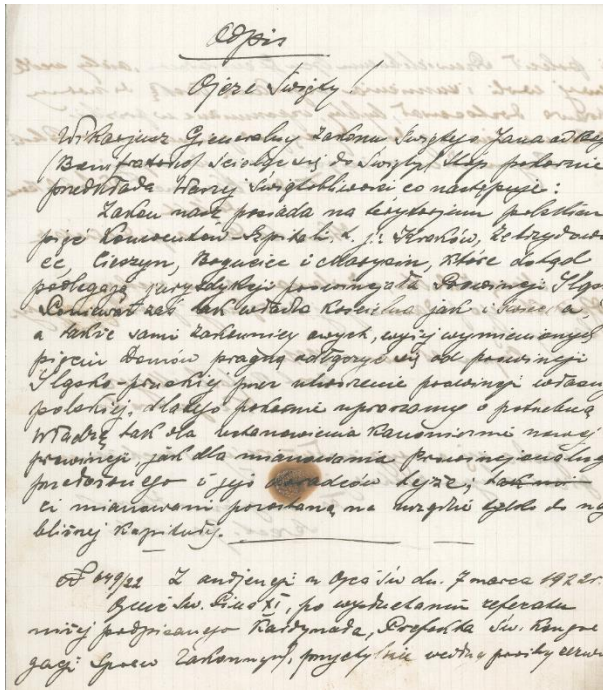 Odpis
Ojcze Święty!
Wikarjusz Gieneralny Zakonu Świętego Jana od Boż
(Bonifratrów) ścieląc się do Świętych stóp pokornie
przedkłada Waszej Świątobliwości co następuje:
Zakon nasz posiada na terytorjum polskiem
pięć Konwentów-Szpitali t. j: Kraków, Zebrzydowi
ce, Cieszyn, Bogucice i Marysin, które dotąd
podlegają jurysdykcji prowincjała Prowincji Śląsk
Ponieważ zaś tak władza Kościelna jak i świecka,
a także sami zakonnicy owych, wyżej wymienionych
pięciu domów pragną odłączyć się od prowincji
Śląsko-pruskiej przez utworzenie prowincji własnej
polskiej, dlatego pokornie upraszamy o potrzebną
władzę tak dla ustanowienia kanonicznie nowej
prowincji, jak dla mianowania Prowincjonalnego
przełożonego i jego doradców tejże; tak no
ci mianowani pozostaną na urzędzie tylko do naj
bliższej Kapituły.
649/22 Z audjencji u Ojca Św. dn. 7 marca 1922 r.
Ojciec Św. Pius XI, po wysłuchaniu referatu
niżej podpisanego Kardynała, Prefekta Św. Kongre
gacji Spraw Zakonnych, przychylnie według prośby zezwo